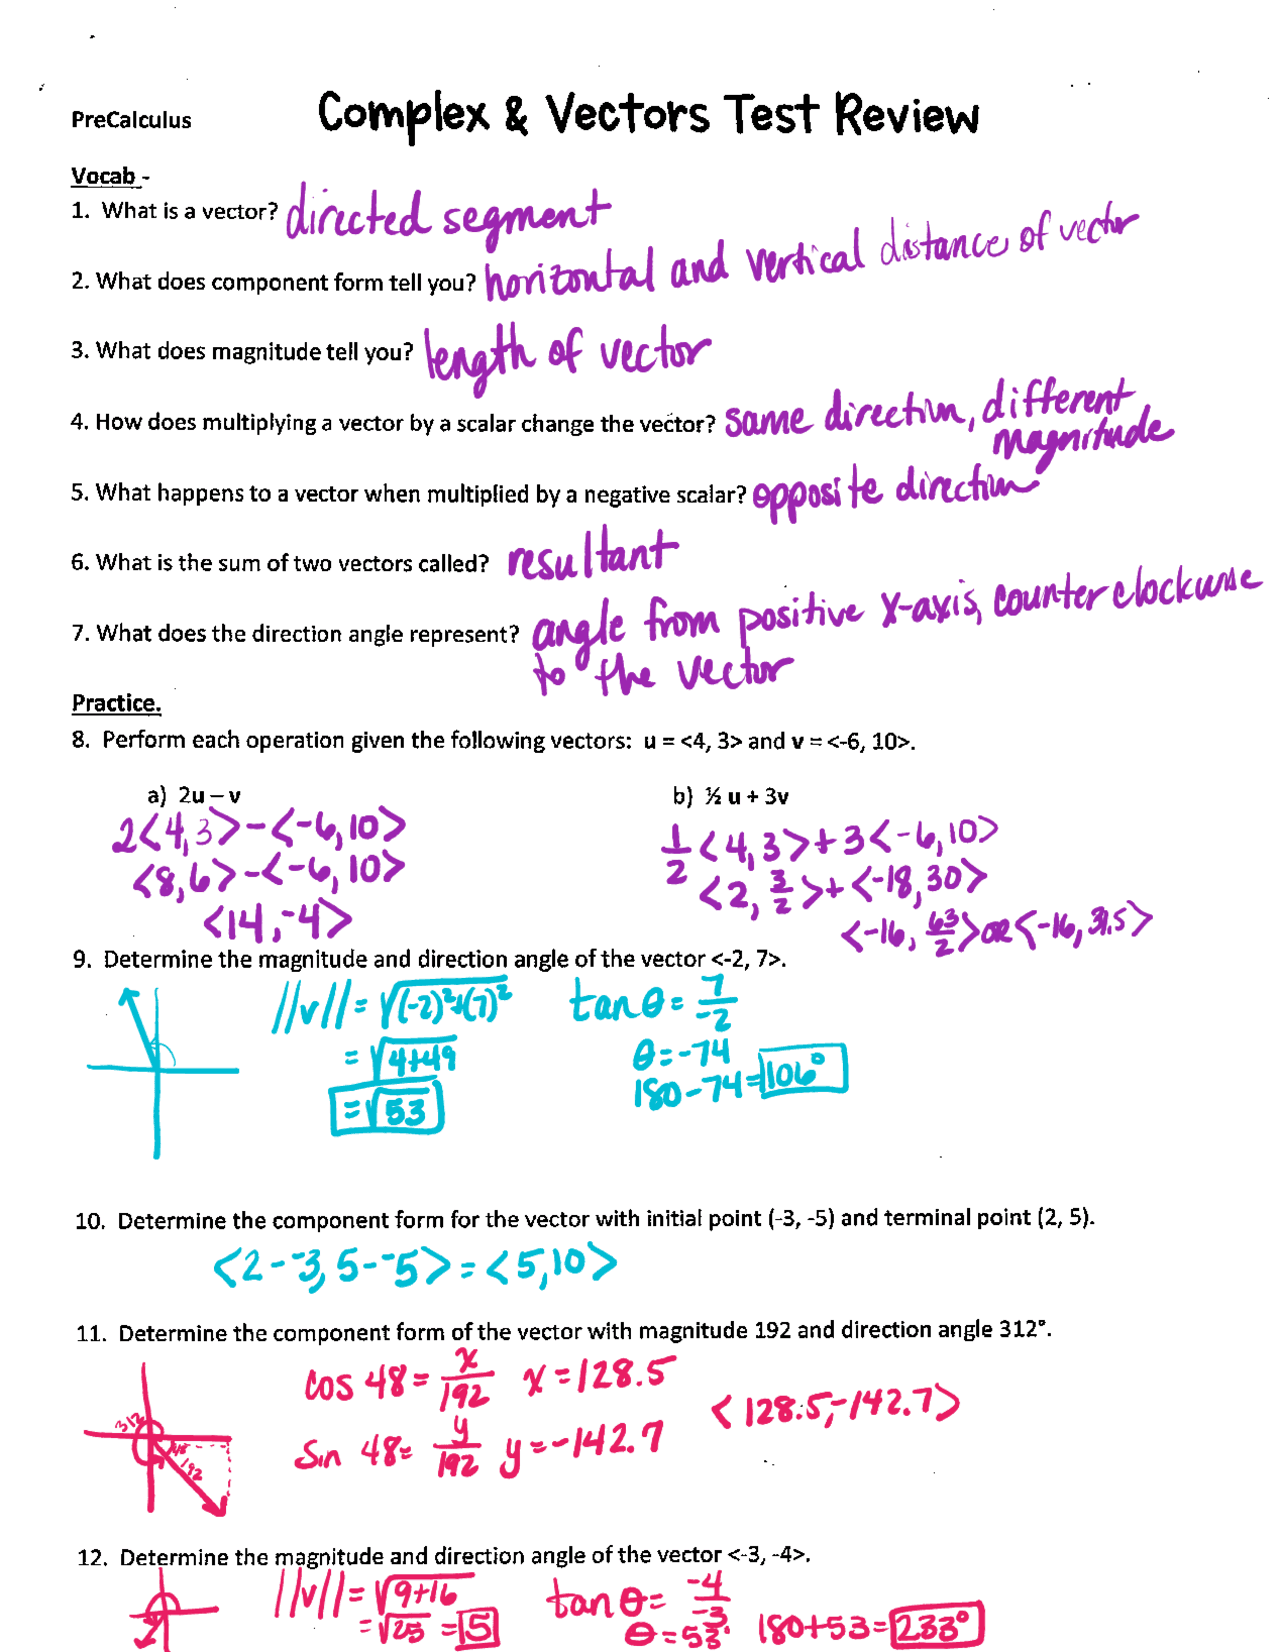 PreCalculus
Complex & Vectors Test Review
Vocab -
1. What is a vector? directed segment
2. What does component form tell you? horizontal and vertical distance of vector
3. What does magnitude tell you? length of vector
4. How does multiplying a vector by a scalar change the vector? same direction, different
magnitude
5. What happens to a vector when multiplied by a negative scalar? opposite direction
6. What is the sum of two vectors called? resultant
7. What does the direction angle represent? angle from positive x-axis, counterclockwise
to the vector
Practice.
8. Perform each operation given the following vectors: u = <4, 3> and v = <-6, 10>.
a) 2u – v
2<4,3>-<-6,10>
<8,6>-<-6,10>
<14,-4>
b) ½ u + 3v
1/2<4,3>+3<-6,10>
<2, 3/2>+<-18,30>
<-16, 63/2> or <-16, 31.5>
9. Determine the magnitude and direction angle of the vector <-2, 7>.
||v||=√(-2)²+(7)²
=√4+49
=√53
tanθ=7/-2
θ=-74
180-74=106°
10. Determine the component form for the vector with initial point (-3, -5) and terminal point (2, 5).
<2--3, 5--5>=<5,10>
11. Determine the component form of the vector with magnitude 192 and direction angle 312°.
312
48
192
cos 48=x/192 x=128.5
sin 48=y/192 y=-142.7
<128.5,-142.7>
12. Determine the magnitude and direction angle of the vector <-3, -4>.
||v||=√9+16
=√25 =5
tanθ=-4/-3
θ=53° 180+53=233°